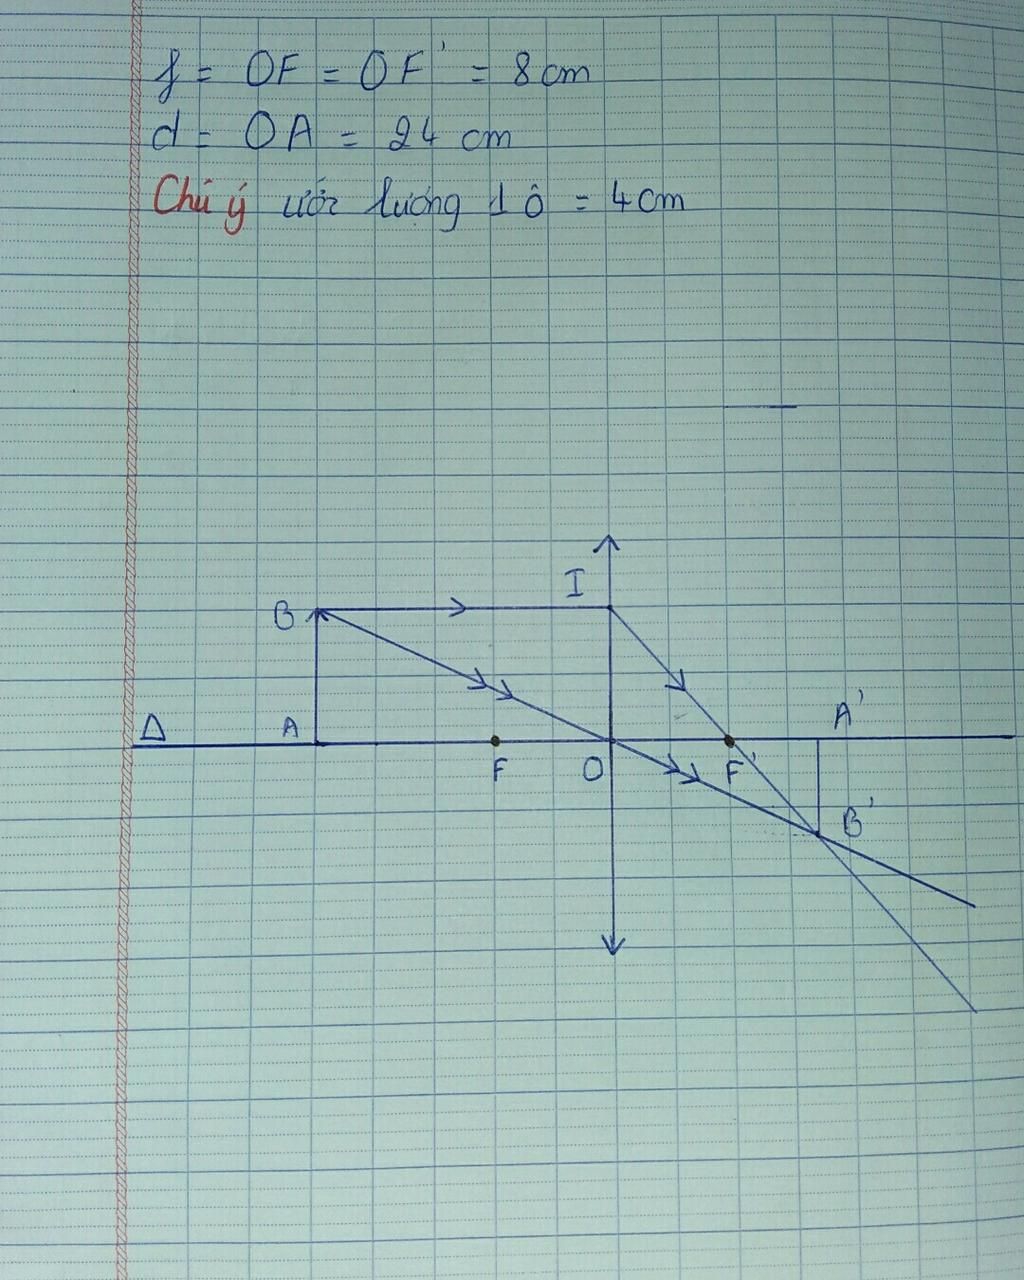 f = OF = OF' = 8 cm
d = OA = 24 cm
Chú ý ước lượng 1 ô = 4cm
I
B
Δ A A'
F O F'
B'